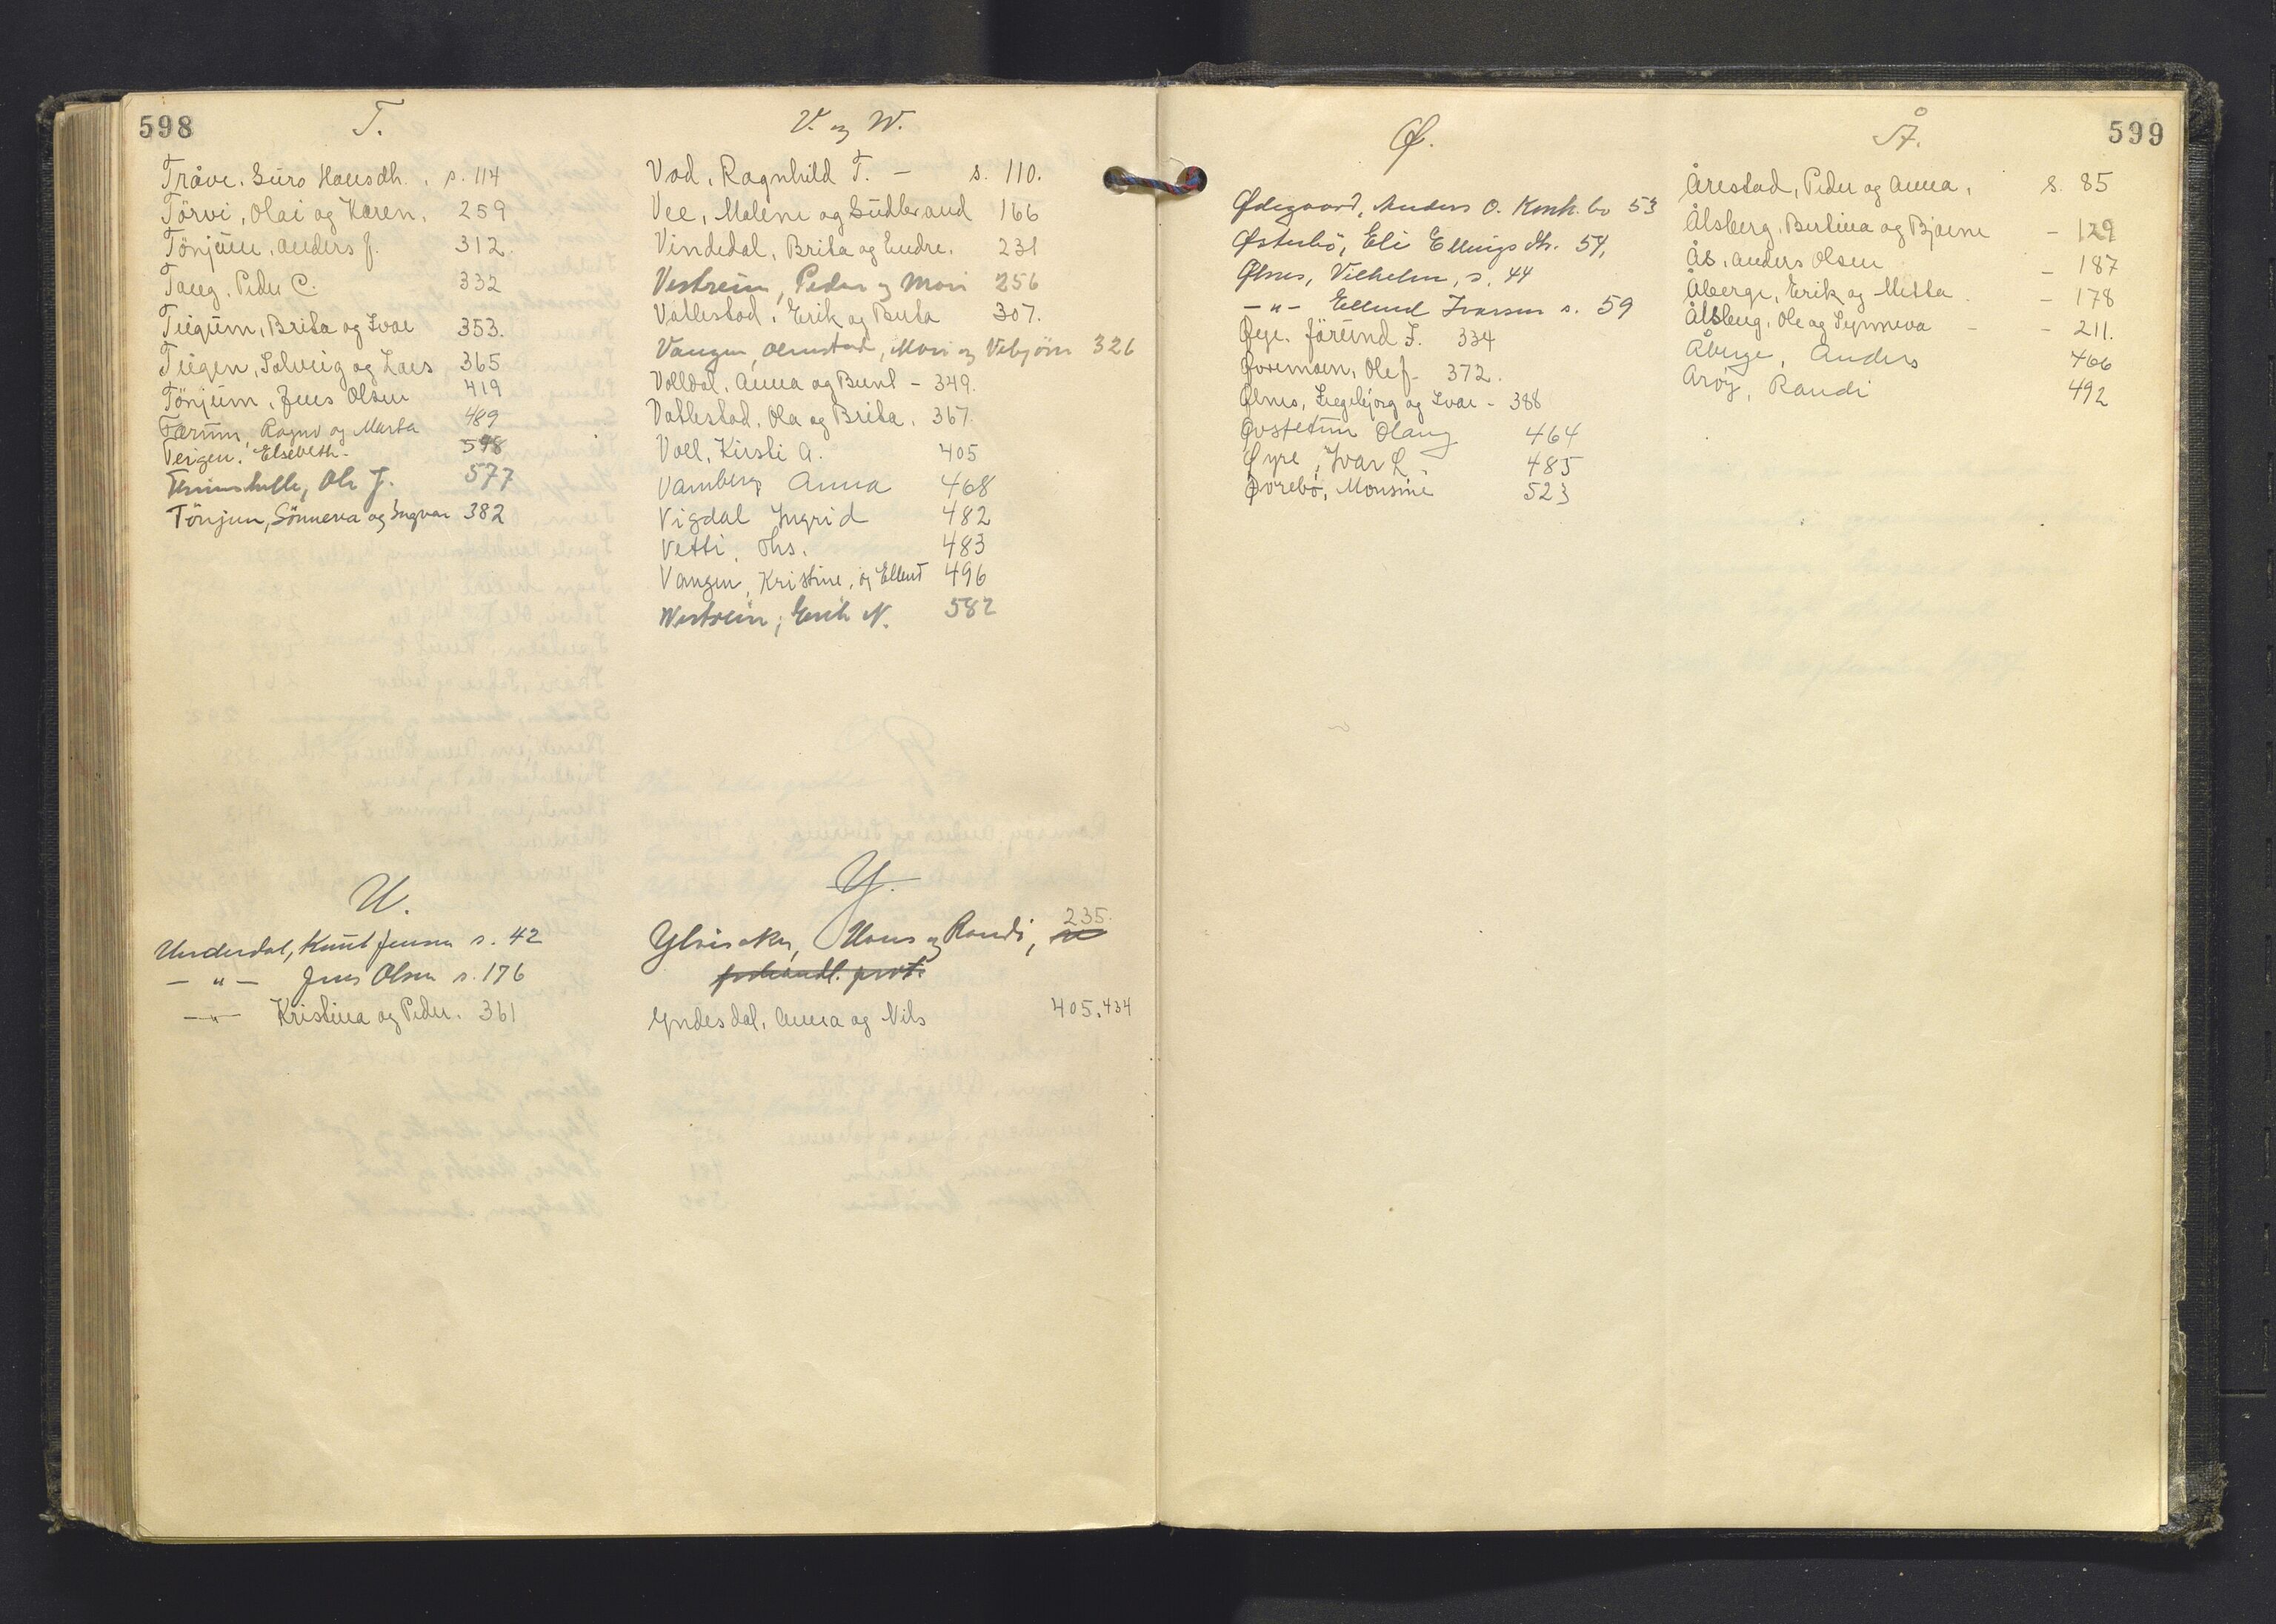 598
T.
Tråve. Guro Hansdh. s. 114
Törvi, Olai og Karen, 259
Tönjum, Anders J. 312.
Taug. Peder C. 332
Teigum, Brita og Ivar 353.
Teigen, Solveig og Lars 365
Tönjum, Jens Olsen 419
Tærum, Ragnv og Marta 489
Teigen. Elsebeth. 598
Ole J. 577
Tönjum, Sönneva og Ingvar 382
V. og W.
Vod, Ragnhild T. - s. 110.
Vee, Malene og Gudbrand 166
Vindedal, Brita og Endre. 231
Vestreim, Peder og Mari 256
Vatlestad, Erik og Brita 307.
Vangen, Olmstad, Mari og Vebjörn 326
Volldal, Anna og Bent - 349.
Vatlestad, Ola og Brita. 367.
Voll, Kirsti A. 405
Vamberg Anna 468
Vigdal Ingrid 482
Vetti, Ths. 483
Vangen, Kristine, og Ellend 496
Westreim, Erik N. 582
U.
Underdal, Knut Jensen s. 42
- " - Jens Olsen s. 176
- " - Kristina og Peder. 361
Y.
Ylvisaker, Hans og Randi, 235.
forhandl. prot.
Yndesdal, Anna og Nils 405.434
599
Ø.
Ødegaard, Anders O. Konk. bo 53
Østerbö, Eli Ellingsdtr. 54,
Ølnes, Vilhelm, s. 44
- " - Ellend Ivarsen s. 59
Øye. Jörund I. 334
Øvremoen, Ole J. 372.
Ølnes, Ingebjorg og Ivar - 388
Øvstetun Olaug 464
Øyre, Ivar L. 485
Øvrebö, Monsine 523
Å.
Årestad, Peder og Anna, s. 85
Ålsberg, Bertina og Bjarne - 129
Ås, Anders Olsen - 187
Åberge, Erik og Metta - 178
Ålsberg, Ole og Synneva - - 211.
Åberge, Anders 466
Årøy, Randi 492